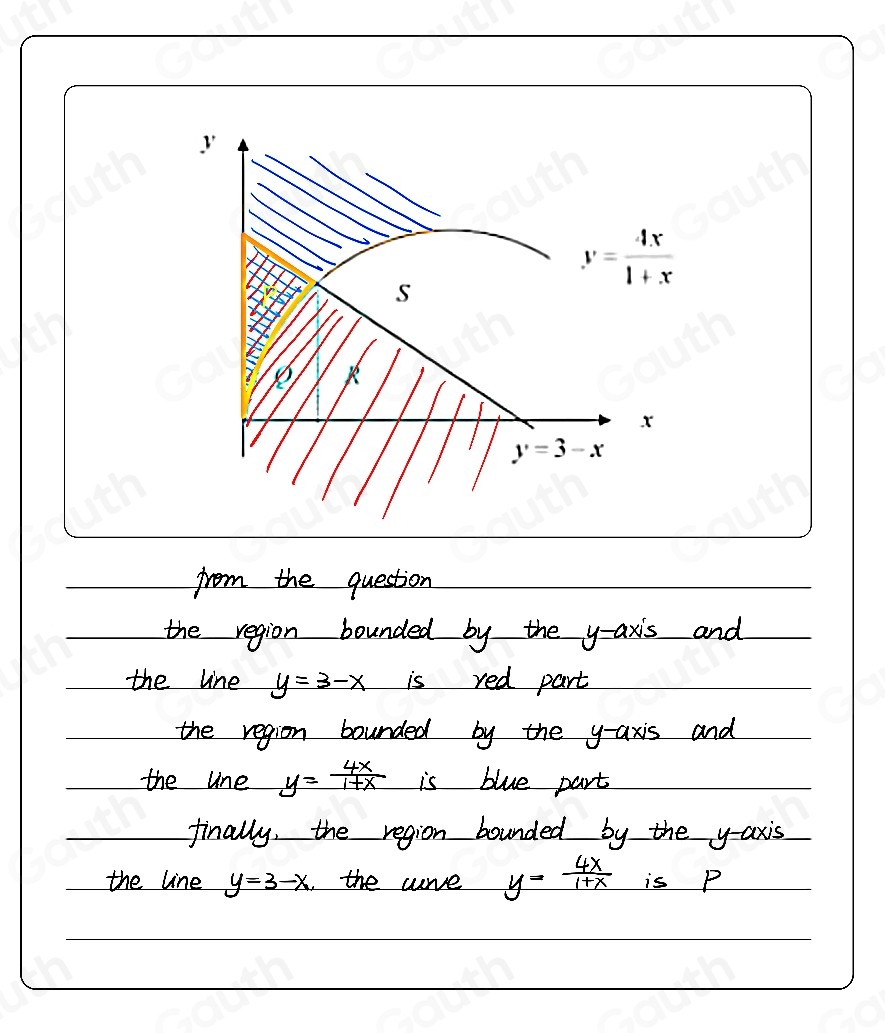 y
y = 4x / 1 + x
S
P
Q
R
x
y = 3 - x
from the question
the region bounded by the y-axis and
the line y = 3-x is red part
the region bounded by the y-axis and
the line y = 4x / 1+x is blue part
finally, the region bounded by the y-axis
the line y=3-x, the curve y = 4x / 1+x is P
Gauth